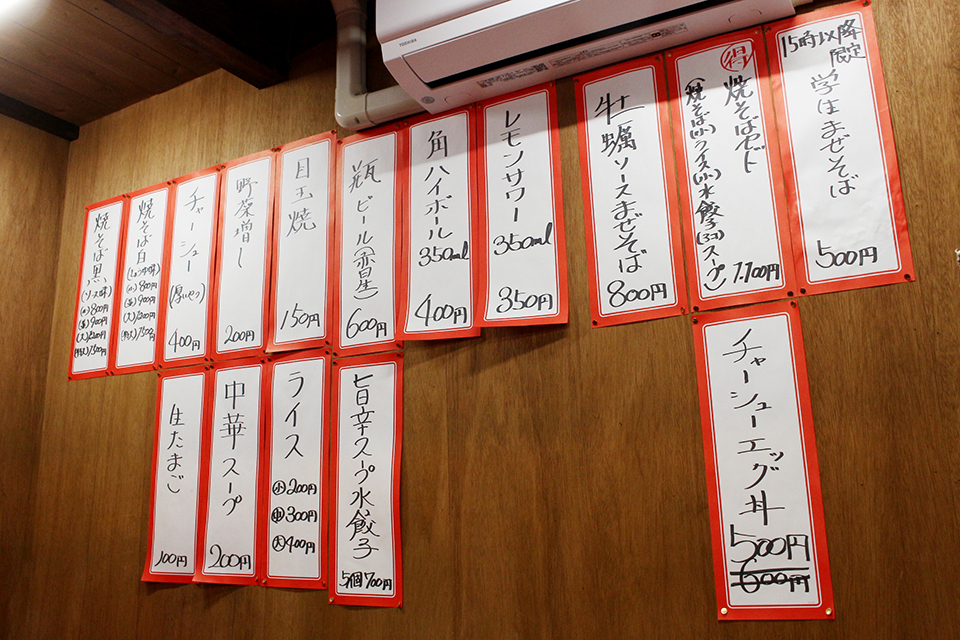 TOSHIBA
15時以降
限定
学生まぜそば
500円
得
焼そばセット
(焼そば(小)ライス(小)水餃子(3コ)スープ)
1,100円
牡蠣ソースまぜそば
800円
レモンサワー
350ml
350円
角ハイボール
350ml
400円
瓶ビール(赤星)
600円
目玉焼
150円
野菜増し
200円
チャーシュー
(厚いやつ)
400円
焼そば白
(小)800円
(並)900円
焼そば黒
(ソース味)
(小)800円
(並)900円
チャーシューエッグ丼
500円
600円
旨辛スープ水餃子
5個700円
ライス
小200円
中300円
大400円
中華スープ
200円
生たまご
100円